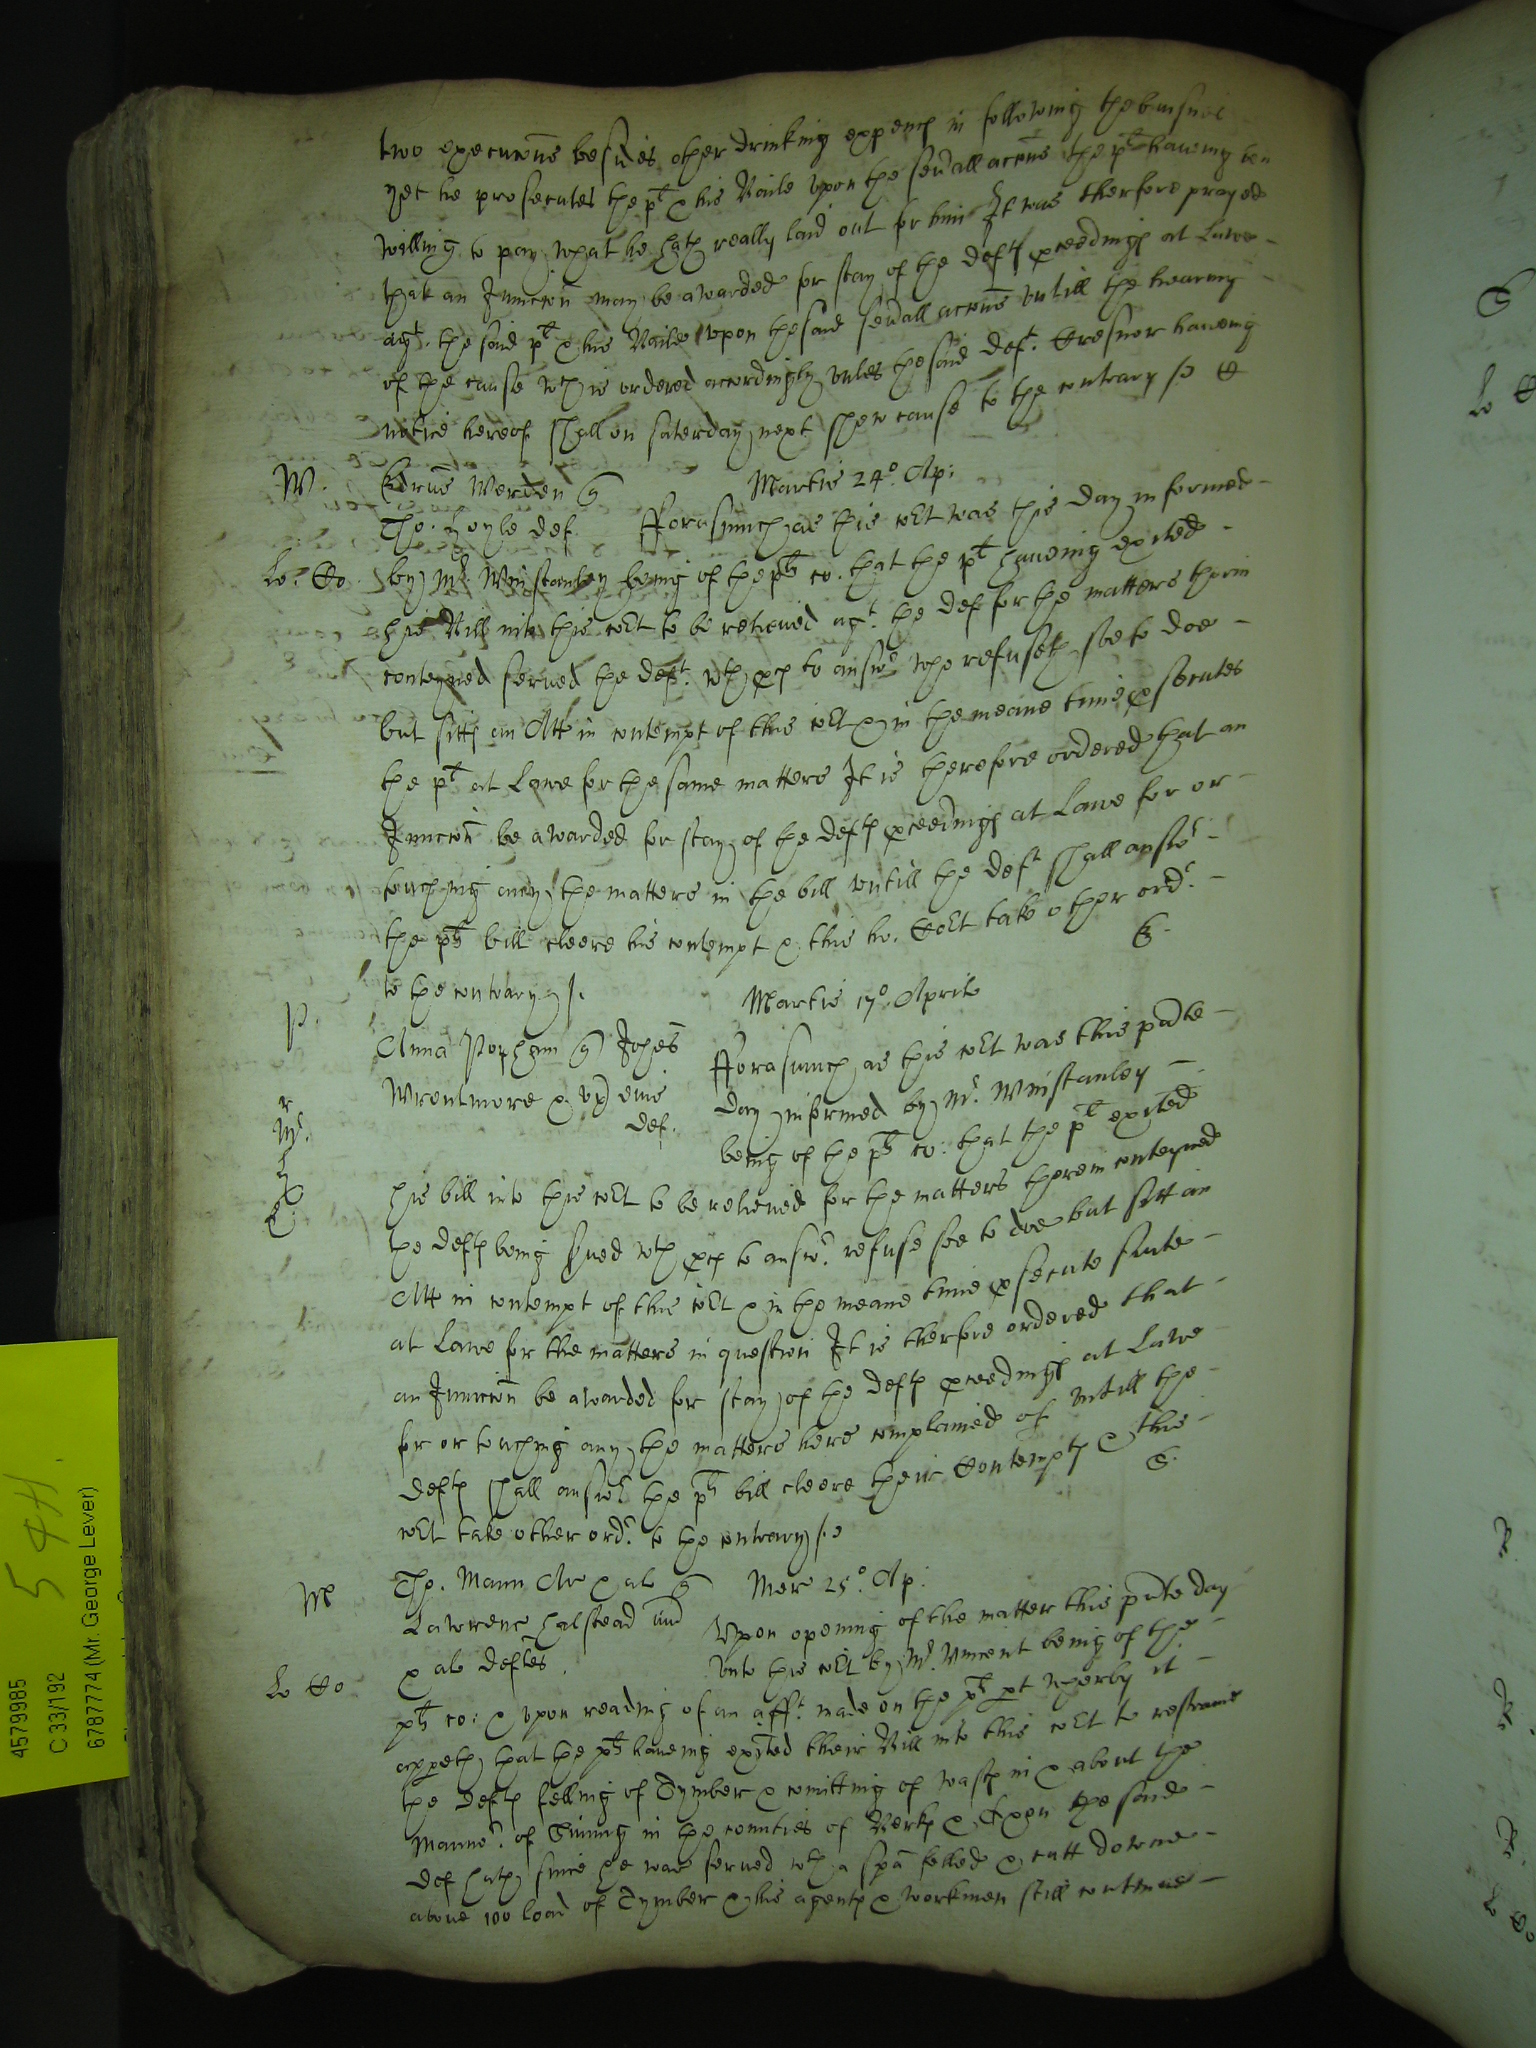 two execucons besides other drinking expences in following the busines
yet he prosecutes the plt & his Baile upon the sevall accons the plt haveing ben
willing to pay what he hath really laid out for him It was therfore prayed
that an Iniuncon may be awarded for stay of the defts pceedings at Lawe
agt. the said plt & his Baile upon the said sevall accons untill the heareing
of the cause wch is ordered accordingly unles the said deft. haveing
notice hereof shall on saterday next shew cause to the contrary
W. Edrus Werden Martis 24o. Ap:
Tho: def. Forasmuch as this cort was this day informed
by Mr. Winstanley being of the plts co. that the plt haveing exited
his Bill into this cort to be releived agt. the def for the matters therin
conteyned served the deft. wth pces to answ who refuseth soe to doe
but sitts an Att in contempt of this cort & in the meane time psecutes
the plt at Lawe for the same matters It is therefore ordered that an
Iniuncon be awarded for stay of the defts pceedings at Lawe for or
touching any the matters in the bill untill the deft shall answ
the plts bill cleere his contempt & this ho. Cort take other ordr.
to the contrary
P. Martis 17o. Aprilis
Anna Popham Johes Forasmuch as this cort was this pnte
Wrentmore & ux eius day informed by Mr. Winstanley
def. being of the plts co: that the plt exited
his bill into this cort to be releived for the matters therein conteyned
the defts being sved wth pces to answ refuse soe to doe but sitt an
Att in contempt of this cort & in the meane time psecute suite
at Lawe for the matters in question It is therfore ordered that
an Iniuncon be awarded for stay of the defts pceedings at Lawe
for or touching any the matters here complained of untill the
defts shall answ the plts bill cleere their Contempts & this
cort take other ordr. to the contrary
M Tho. Mann Ar & al Mer 25o. Ap:
Lawrence Halstead Upon opening of the matter this pnte day
& al deftes. unto this cort by Mr. Vincent being of the
Lo Co plts co: & upon reading of an afft. made on the plts pt wherby it
appeth that the plts haveing exited their Bill into this cort to restraine
the defts felling of Tymber & comitting of wasts in & about the
Manno. of Sunning in the counties of Berks & Oxon the said
def hath since he was served wth a spa felled & cutt downe
above 100 load of Tymber & his agents & workmen still continue
4579985
C 33/192
6787774 (Mr. George Lever)